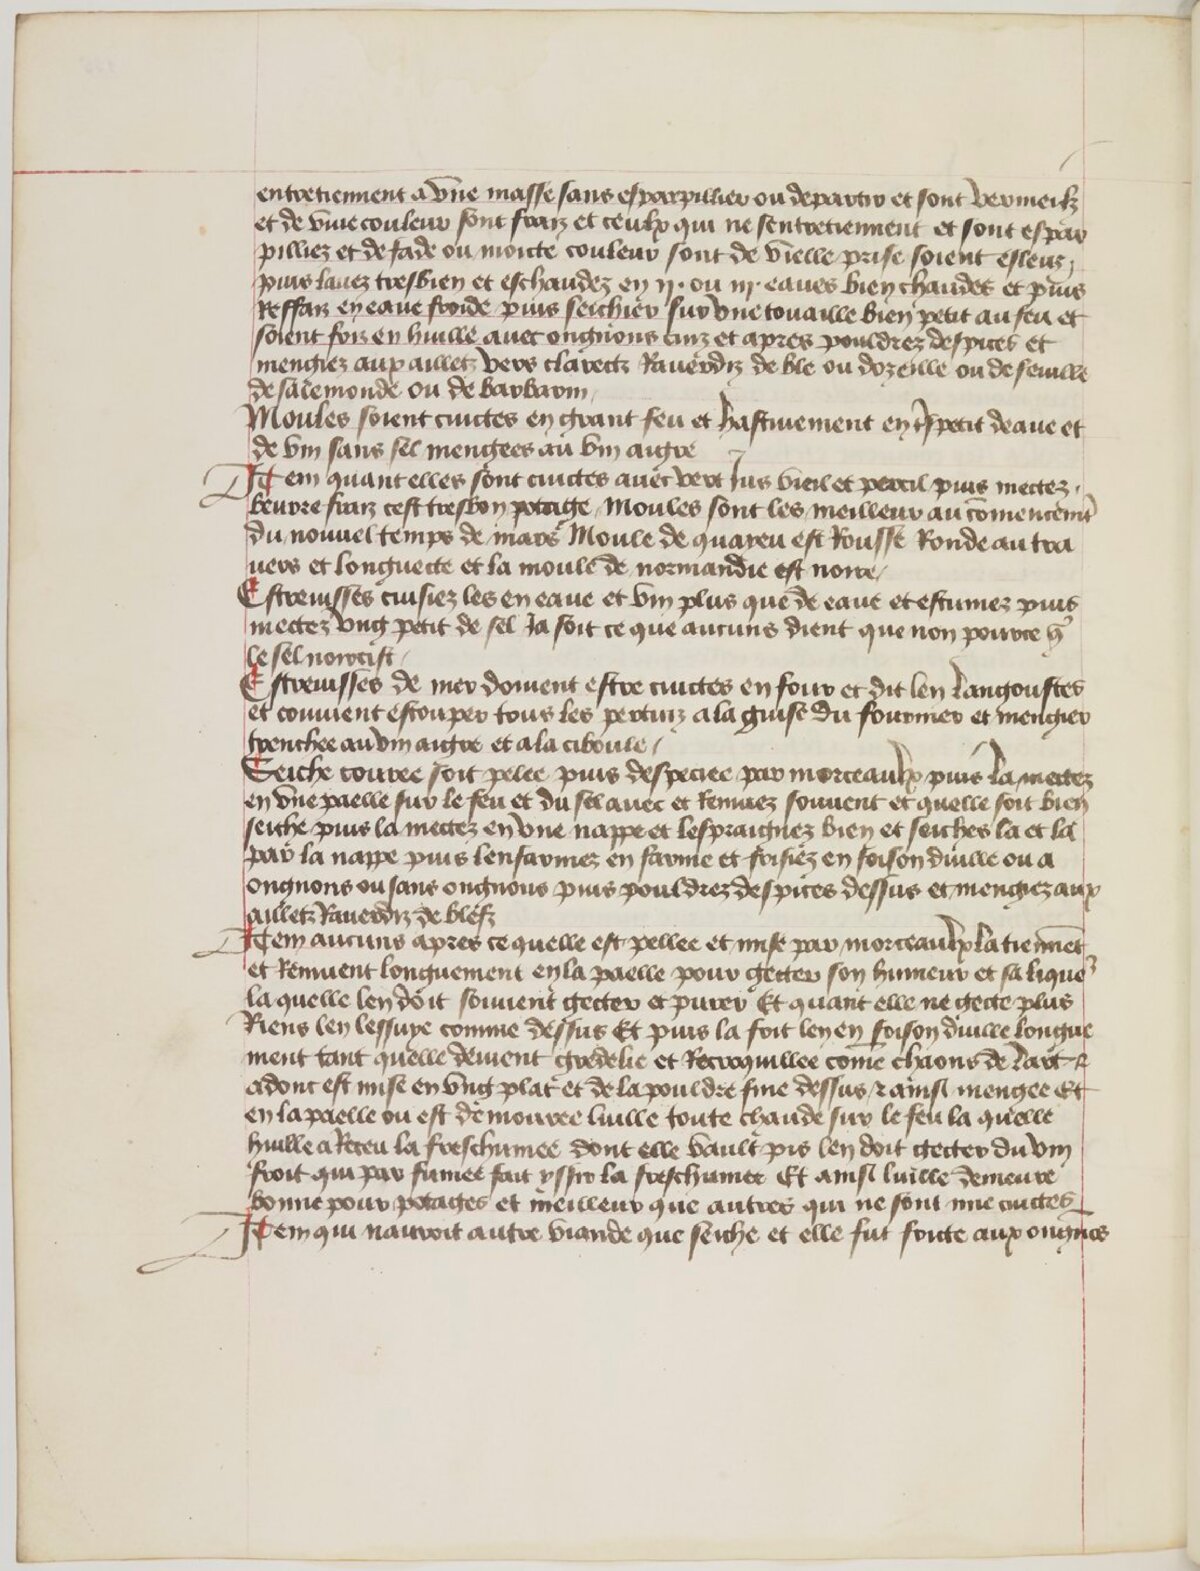 entretiennent a une masse sans esparpillier ou departir et sont vermeilz
et de vive couleur sont fraiz et ceulx qui ne sentretiennent et sont espar
pilliez et de fade ou morte couleur sont de vielle prise soient esleuz,
puis lavez tresbien et eschaudez en ij. ou iij. eaues bien chaudes et puis
Reffaiz en eaue froide puis seichier sur une touaille bien petit au feu et
soient friz en huille avec ongnons cuiz et apres pouldrez despices et
mengiez aux aulletz vers clarectz Raverdiz de ble ou dozeille ou de feuille
de salemonde ou de barbarin,
Moules soient cuictes en grant feu et hastivement en tspetit deaue et
de vin sans sel mengees au vin aigre
Item quant elles sont cuictes avec vert Jus vieil et percil puis mectez
beurre fraiz cest tresbon potage, Moules sont les meilleur au comencemt
du nouvel temps de mars Moule de quayeu est Rousse Ronde au tra
vers et longuecte et la moule de normandie est noire,
Escrevisses cuisiez les en eaue et vin plus que de eaue et escumez puis
mectez ung petit de sel Ja soit ce que aucuns dient que non pource q
le sel norcist,
Escrevisses de mer doivent estre cuictes en four et dit len Langoustes
et convient estouper tous les pertuiz a la guise du fournier et mengier
trenchee au vin aigre et a la ciboule,
Seiche conree soit pelee puis despeciee par morceaulx puis La mectez
en une paelle sur le feu et du sel avec et Remuez souvent et quelle soit bien
seiche puis la mectez en une nappe et lespraignez bien et seiches la et la
par la nappe puis lenfarinez en farine et frisiez en foison duille ou a
ongnons ou sans ongnons puis pouldrez despices dessus et mengiez aux
ailletz Raverdiz de blefz
Item aucuns apres ce quelle est pellee et mise par morceaulx la tiennet
et Remuent longuement en la paelle pour gecter son humeur et sa lique
la quelle len doit souvent gecter et purer Et quant elle ne gecte plus
Riens len lessuye comme dessus Et puis la frit len en foison duille longue
ment tant quelle devient gredelie et Recroquillee come chaons de lart ⁊
adonc est mise en ung plat et de la pouldre fine dessus ⁊ ainsi mengee Et
en la paelle ou est demouree luille toute chaude sur le feu la quelle
huille a Receu la freschumee dont elle vault pis len doit gecter du vin
froit qui par fumee fait yssir la freschumee Et ainsi luille demeure
bonne pour potages et meilleur que autres qui ne sont mie cuictes
Item qui nauroit autre viande que seiche et elle fut fricte aux ongnos